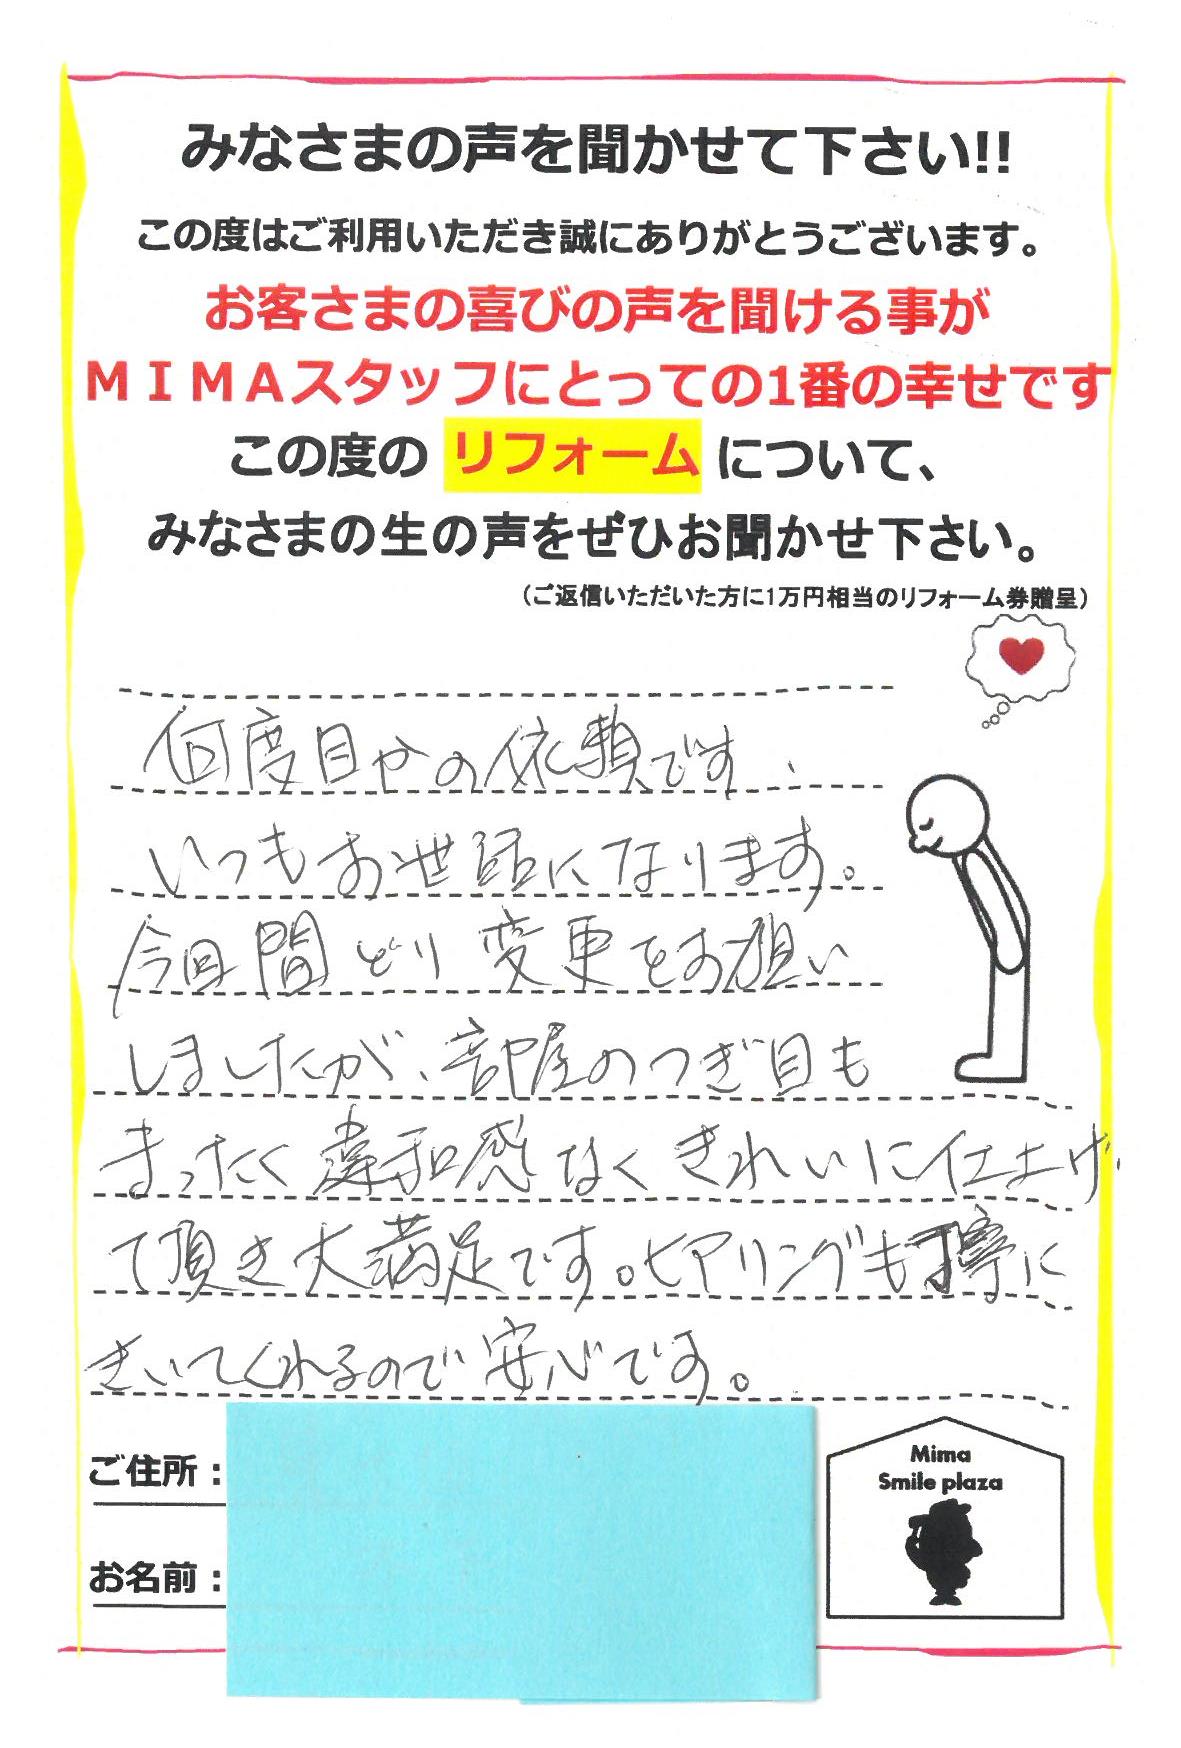 みなさまの声を聞かせて下さい!!
この度はご利用いただき誠にありがとうございます。
お客さまの喜びの声を聞ける事が
ＭＩＭＡスタッフにとっての1番の幸せです
この度の リフォーム について、
みなさまの生の声をぜひお聞かせ下さい。
（ご返信いただいた方に1万円相当のリフォーム券贈呈）
何度目かの依頼です、
いつもお世話になります。
今回間どり変更をお願い
しましたが、部屋のつぎ目も
まったく違和感なくきれいに仕上げ
て頂き大満足です。ヒアリングも丁寧に
きいてくれるので安心です。
ご住所：
お名前：
Mima
Smile plaza